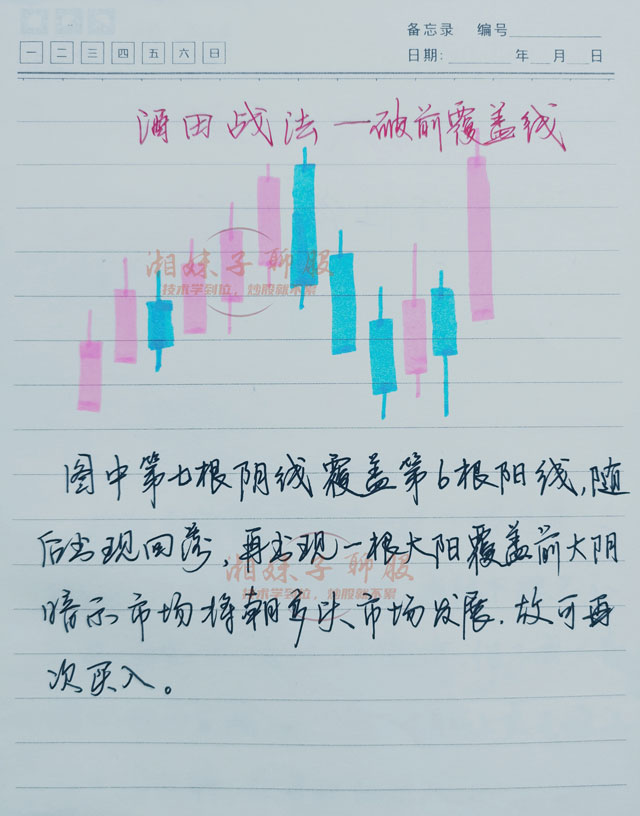 备忘录 编号
一 二 三 四 五 六 日
日期: 年 月 日
酒田战法一破前覆盖线
湘妹子聊股
技术学到位，炒股就不累
图中第七根阴线覆盖第6根阳线,随
后出现回落,再出现一根大阳覆盖前大阴
湘妹子聊股
技术学到位，炒股就不累
暗示市场将朝多头市场发展.故可再
次买入。